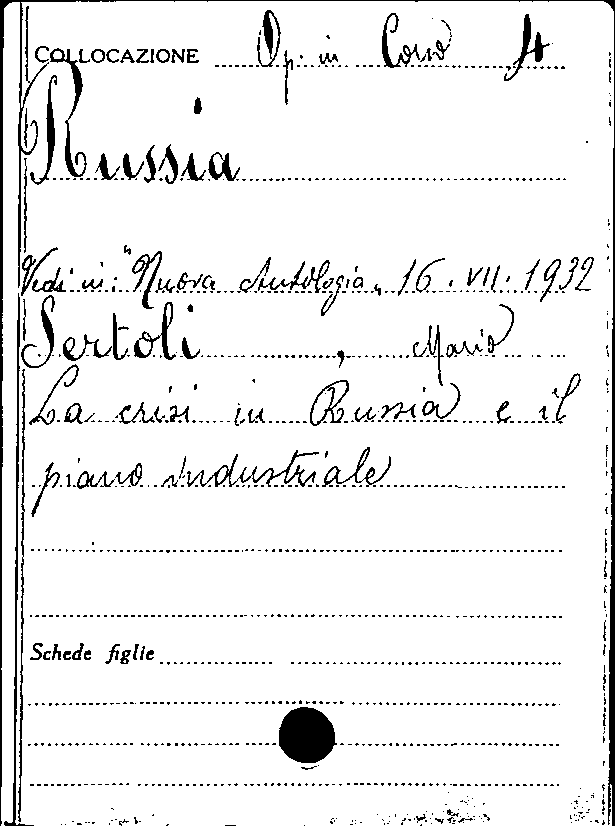 COLLOCAZIONE Op. in Corso 4
Russia
Vedi in: "Nuova Antologia" 16. VII. 1932
Sertoli, Mario
La crisi in Russia e il
piano industriale
Schede figlie